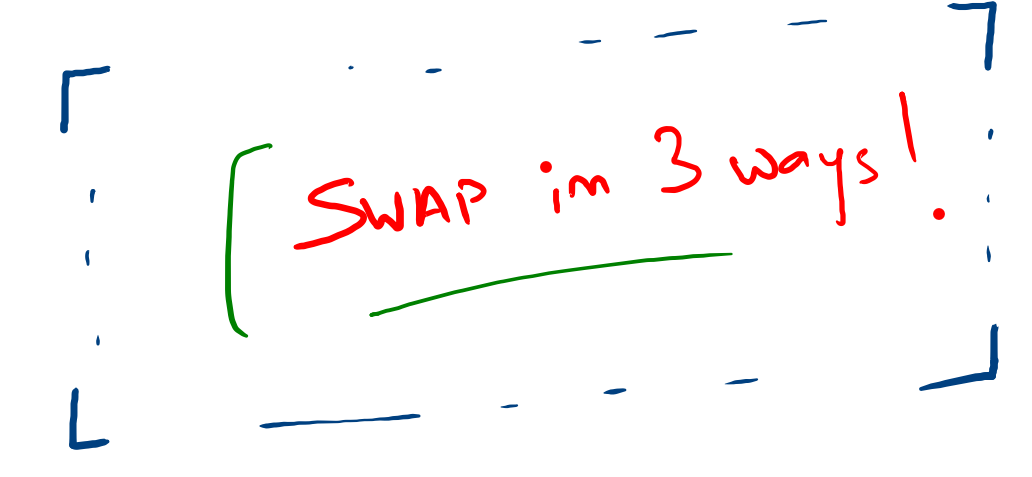 SWAP in 3 ways!